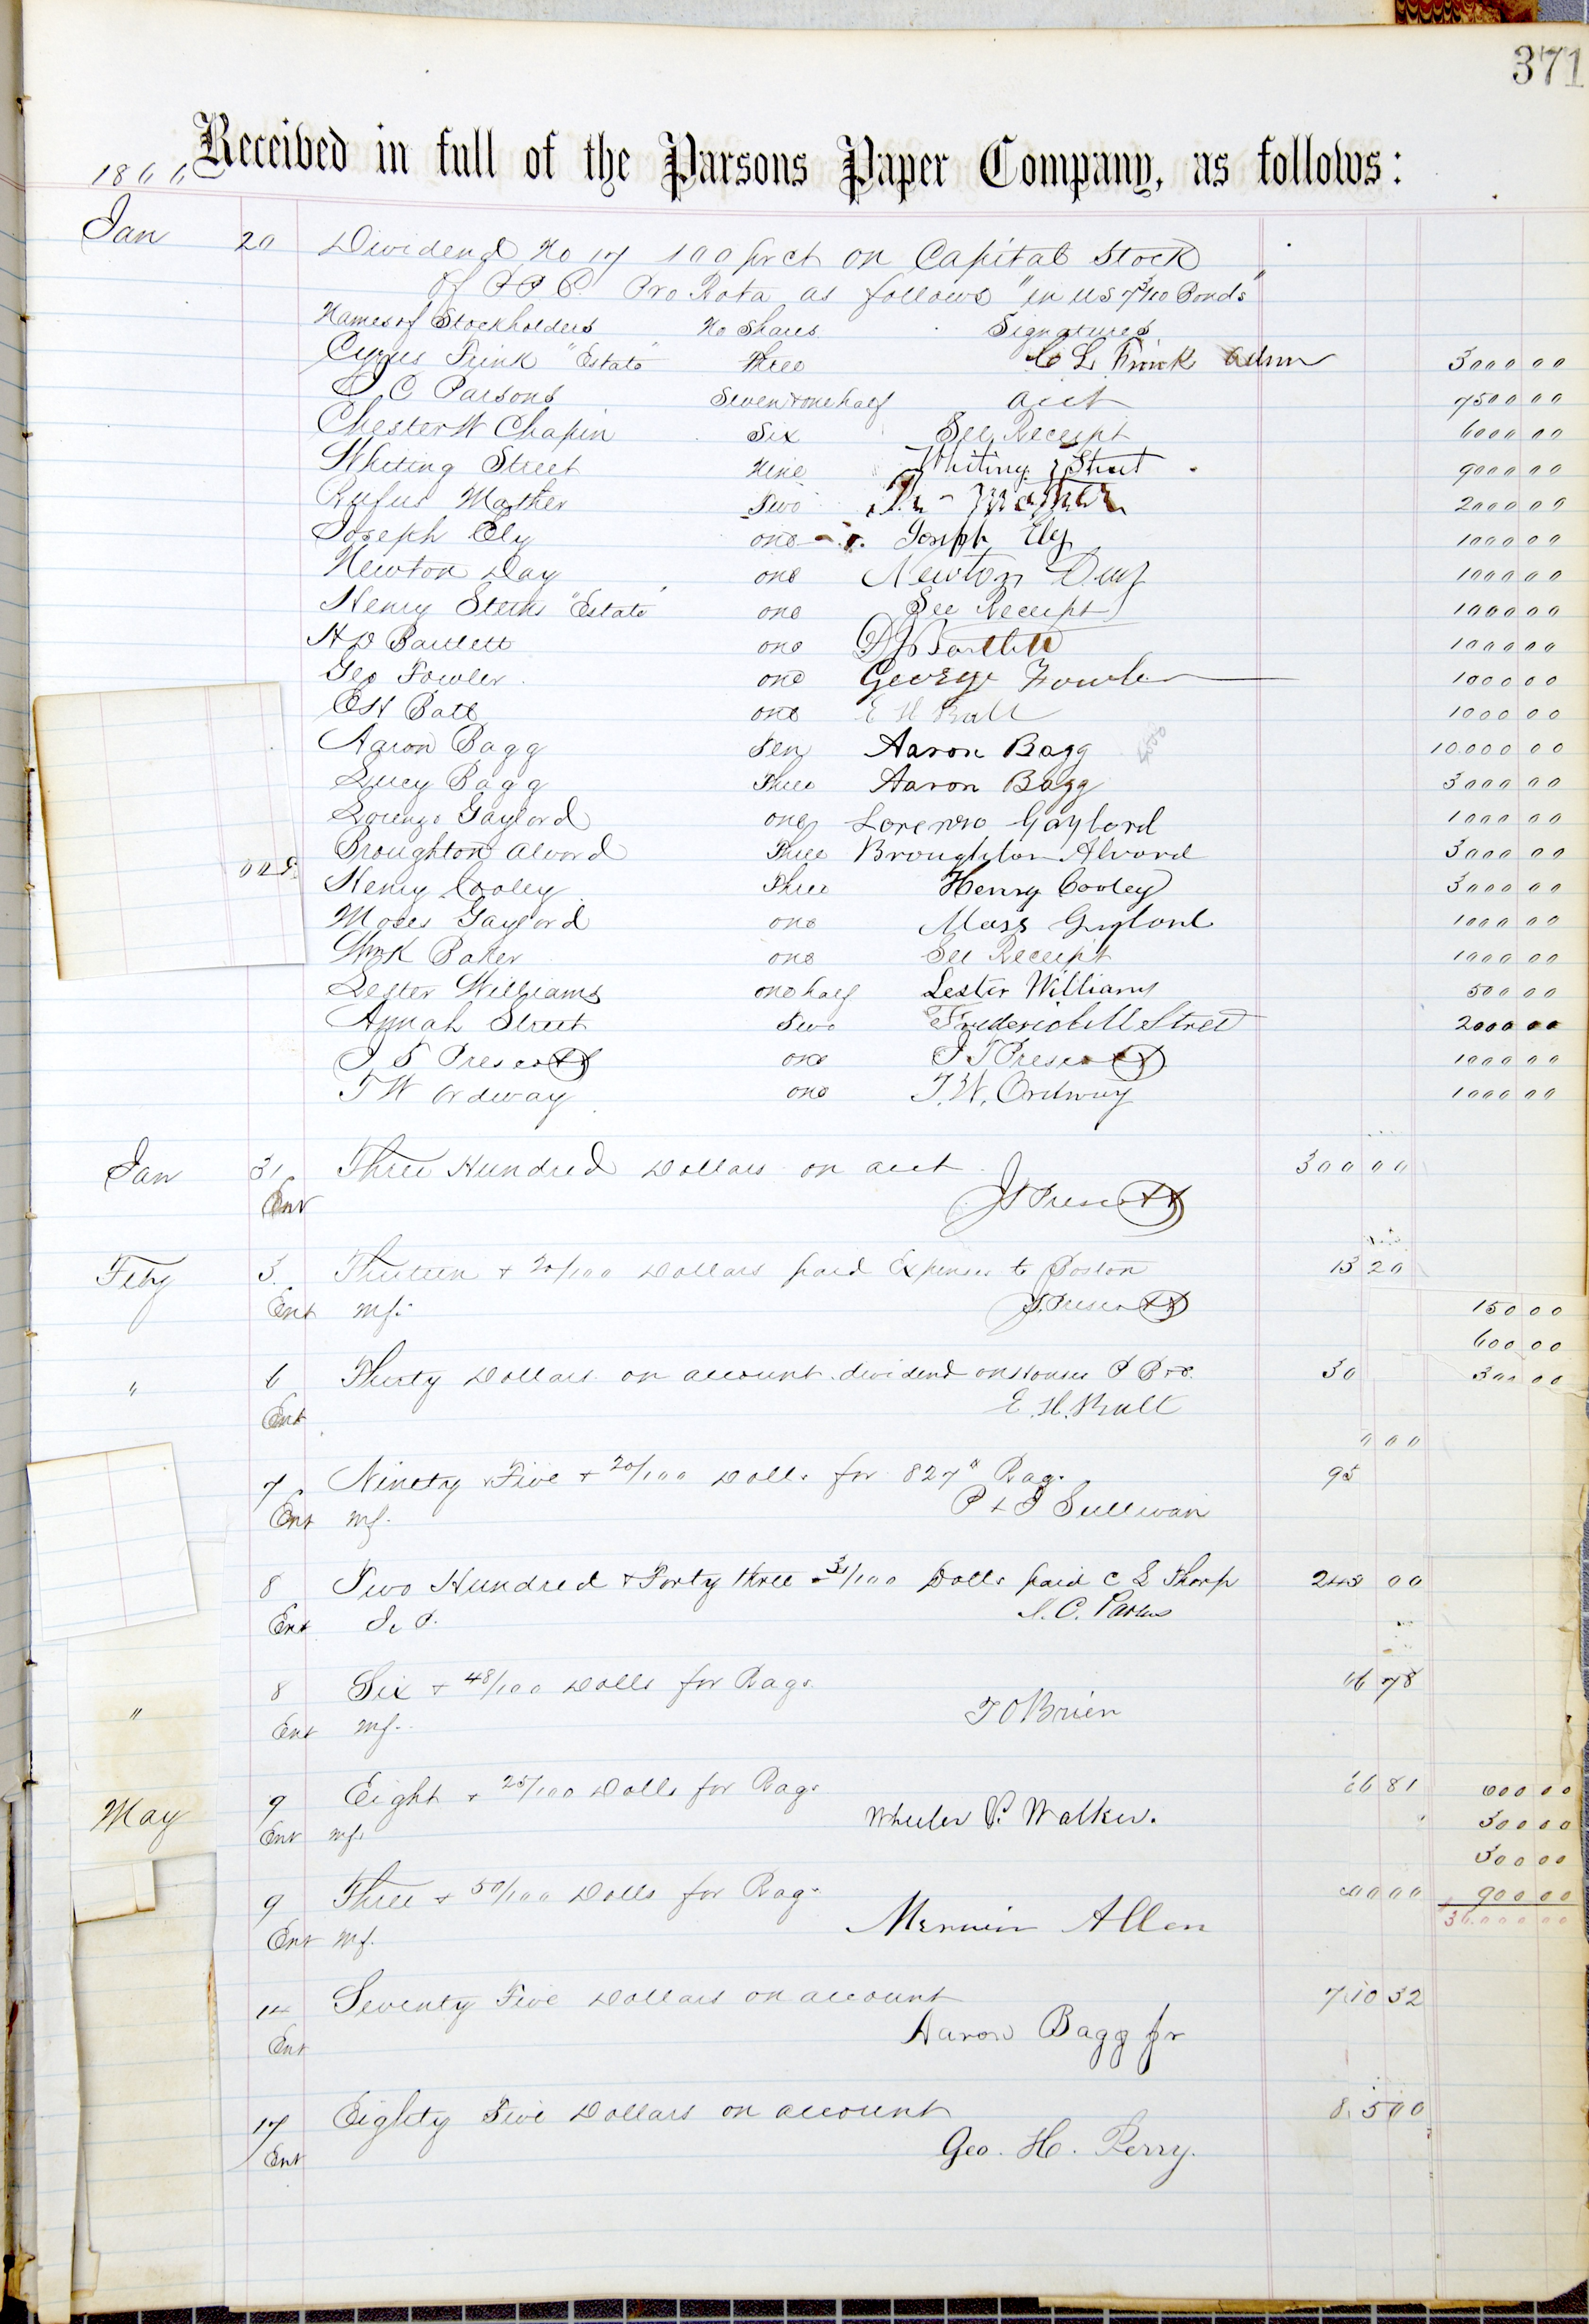 371
Received in full of the Parsons Paper Company, as follows:
1866
Jan 20 Dividend No 17 100 pr ct on Capital Stock
of P P C. Pro Rata as follows "in US 7 3/10 Bonds"
Names of Stockholders No Shares Signatures
Cyrus Frink "Estate" Three C L Frink Admr 3000 00
J C Parsons Seven & one half acct 7500 00
Chester W Chapin Six See Receipt 6000 00
Whiting Street Nine Whiting Street 9000 00
Rufus Mather Two R Mather 2000 00
Joseph Ely one Joseph Ely 1000 00
Newton Day one Newton Day 1000 00
Henry Stearns "Estate" one See Receipt 1000 00
H D Bartlett one Bartlett 1000 00
Geo Fowler one George Fowler 1000 00
E H Ball one E H Ball 1000 00
Aaron Bagg Ten Aaron Bagg 10.000 00
Lucy Bagg Three Aaron Bagg 3000 00
Lorenzo Gaylord one Lorenzo Gaylord 1000 00
Broughton Alvord Three Broughton Alvord 3000 00
Henry Cooley Three Henry Cooley 3000 00
Moses Gaylord one Moses Gaylord 1000 00
Wm K Baker one See Receipt 1000 00
Lester Williams one half Lester Williams 500 00
Annah Street Two Frederick M Street 2000 00
J S Prescott one J S Prescott 1000 00
T W Ordway one T. W. Ordway 1000 00
Jan 31 Three Hundred Dollars on acct 300 00
Ent J S Prescott
Feby 3 Thirteen & 20/100 Dollars paid Expenses to Boston 13 20
Ent Mf. J. S. Prescott
150 00
600 00
" 6 Thirty Dollars on account dividend on 30 300 00
Ent E. H. Ball
000
7 Ninety Five & 20/100 Dolls for 827" Rags 95
Ent Mf. P & J Sullivan
8 Two Hundred & Forty three & 31/100 Dolls paid C L Thorp 243 00
Ent J. C. Parsons
" 8 Six & 48/100 Dolls for Rags 6 78
Ent Mf. T O Brien
May 9 Eight & 25/100 Dolls for Rags 6 81 000 00
Ent Mf. Wheeler P. Walker. 300 00
300 00
9 Three & 50/100 Dolls for Rags 00 00 900 00
Ent Mf. Merwin Allen
14 Seventy Five Dollars on account 7 10 32
Ent Aaron Bagg Jr
17 Eighty Five Dollars on account 8 5 00
Ent Geo. H. Perry.